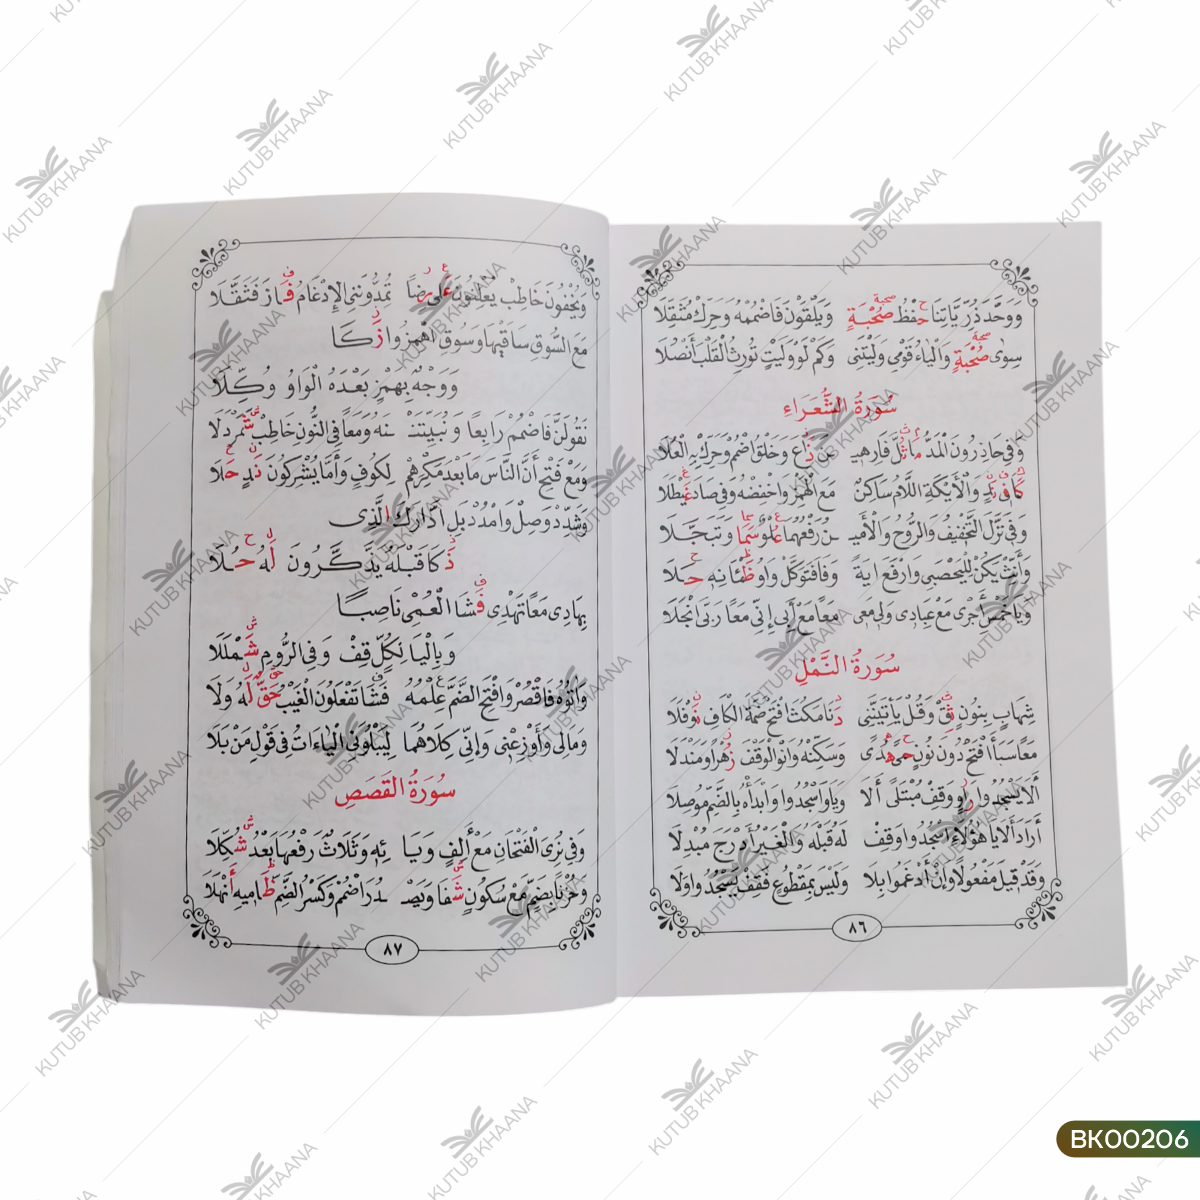 وَوَحَّدَ ذُرِّيَّاتِنَا حِفْظُ صُحْبَةٍ وَيَلْقَوْنَ فَاضْمُمْهُ وَحَرِّكْ مُثَقِّلَا
سِوٰى صُحْبَةٍ وَالْيَاءُ قَوْمِي وَلَيْتَنِي وَكَمْ لَوْ وَلَيْتٍ تُورِثُ الْقَلْبَ أَنْصُلَا
سُورَةُ الشُّعَرَاءِ
وَفِي حَاذِرُونَ الْمَدُّ مَا ثُلَّ فَارِهِيـ نَ ذَاعَ وَخَلْقُ اضْمُمْ وَحَرِّكْ بِهِ الْعُلَا
كَمَا فِي نَدٍ وَالْأَيْكَةِ اللَّامُ سَاكِنٌ مَعَ الْهَمْزِ وَاخْفِضْهُ وَفِي صَادَ غَيْطَلَا
وَفِي نَزَّلَ التَّخْفِيفُ وَالرُّوحُ وَالْأَمِيـ ـنُ رَفْعُهُمَا عُلْوٌ سَمَا وَتَبَجَّلَا
وَأَنِّثْ يَكُنْ لِلْيَحْصَبِي وَارْفَعْ اٰيَةً وَفَا فَتَوَكَّلْ وَاوُ ظَمْاٰنِهِ حَلَا
وَيَا خَمْسِ أَجْرِي مَعْ عِبَادِي وَلِي مَعِي مَعًا مَعْ أَبِي إِنِّي مَعًا رَبِّيَ انْجَلَا
سُورَةُ النَّمْلِ
شِهَابٍ بِنُونٍ ثِقْ وَقُلْ يَأْتِيَنَّنِي دَنَا مَكُثَ افْتَحْ ضَمَّةَ الْكَافِ نَوْفَلَا
مَعًا سَبَأَ افْتَحْ دُونَ نُونٍ حِمًى هُدًى وَسَكِّنْهُ وَانْوِ الْوَقْفَ زُهْرًا وَمَنْدَلَا
أَلَا يَسْجُدُوا رَاوٍ وَقِفْ مُبْتَلًى أَلَا وَيَا وَاسْجُدُوا وَابْدَأْهُ بِالضَّمِّ مُوصِلَا
أَرَادَ أَلَا يَا هٰؤُلَاءِ اسْجُدُوا وَقِفْ لَهُ قَبْلَهُ وَالْغَيْرُ أَدْرَجَ مُبْدِلَا
وَقَدْ قِيلَ مَفْعُولًا وَإِنْ أَدْغَمُوا بِلَا وَلَيْسَ بِمَقْطُوعٍ فَقِفْ يَسْجُدُوا وَلَا
٨٦
وَيُخْفُونَ خَاطِبْ يُعْلِنُونَ عَلٰى رِضًا تُمِدُّونَنِي الْإِدْغَامُ فَازَ فَثَقَّلَا
مَعَ السُّوقِ سَاقَيْهَا وَسُوقِ اهْمِزُوا زَكَا
وَوَجْهٌ بِهَمْزٍ بَعْدَهُ الْوَاوُ وُكِّلَا
نَقُولَنَّ فَاضْمُمْ رَابِعًا وَنُبَيِّتَنْـ ـنَهُ وَمَعًا فِي النُّونِ خَاطِبْ شَمَرْدَلَا
وَمَعْ فَتْحِ أَنَّ النَّاسَ مَا بَعْدَ مَكْرِهِمْ لِكُوفٍ وَأَمَّا يُشْرِكُونَ نَدٍ حَلَا
وَشَدِّدْ وَصِلْ وَامْدُدْ بَلِ ادَّارَكَ الَّذِي
ذَكَا قَبْلَهُ يَذَّكَّرُونَ لَهُ حُلَا
بِهَادِي مَعًا تَهْدِي فَشَا الْعُمْيِ نَاصِبًا
وَبِالْيَا لِكُلٍّ قِفْ وَفِي الرُّومِ شَمْلَلَا
وَاٰتُوهُ فَاقْصُرْ وَافْتَحِ الضَّمَّ عِلْمُهُ فَشَا تَفْعَلُونَ الْغَيْبُ حَقٌّ لَهُ وَلَا
وَمَالِي وَأَوْزِعْنِي وَإِنِّي كِلَاهُمَا لِيَبْلُوَنِي الْيَاءَاتُ فِي قَوْلِ مَنْ بَلَا
سُورَةُ الْقَصَصِ
وَفِي نُرِيَ الْفَتْحَانِ مَعْ أَلِفٍ وَيَا ئِهِ وَثَلَاثٌ رَفْعُهَا بَعْدُ شُكِّلَا
وَحُزْنًا بِضَمٍّ مَعْ سُكُونٍ شَفَا وَيَصْـ ـدُرَ اضْمُمْ وَكَسْرُ الضَّمِّ ظَامِيهِ أَنْهَلَا
٨٧
KUTUB KHAANA
BK00206